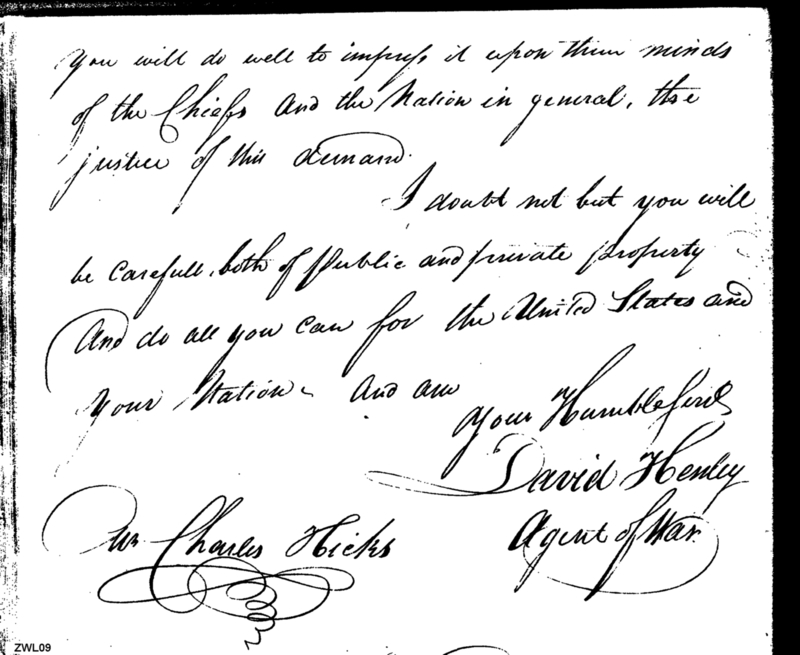 You will do well to impress it upon their minds
of the Chiefs And the Nation in general, the
justice of this demand.
I doubt not but you will
be carefull, both of Public and private property
And do all you can for the United States and
Your Nation - And am
Your Humble Serv
David Henley
Agent of War.
Mr Charles Hicks
ZWL09